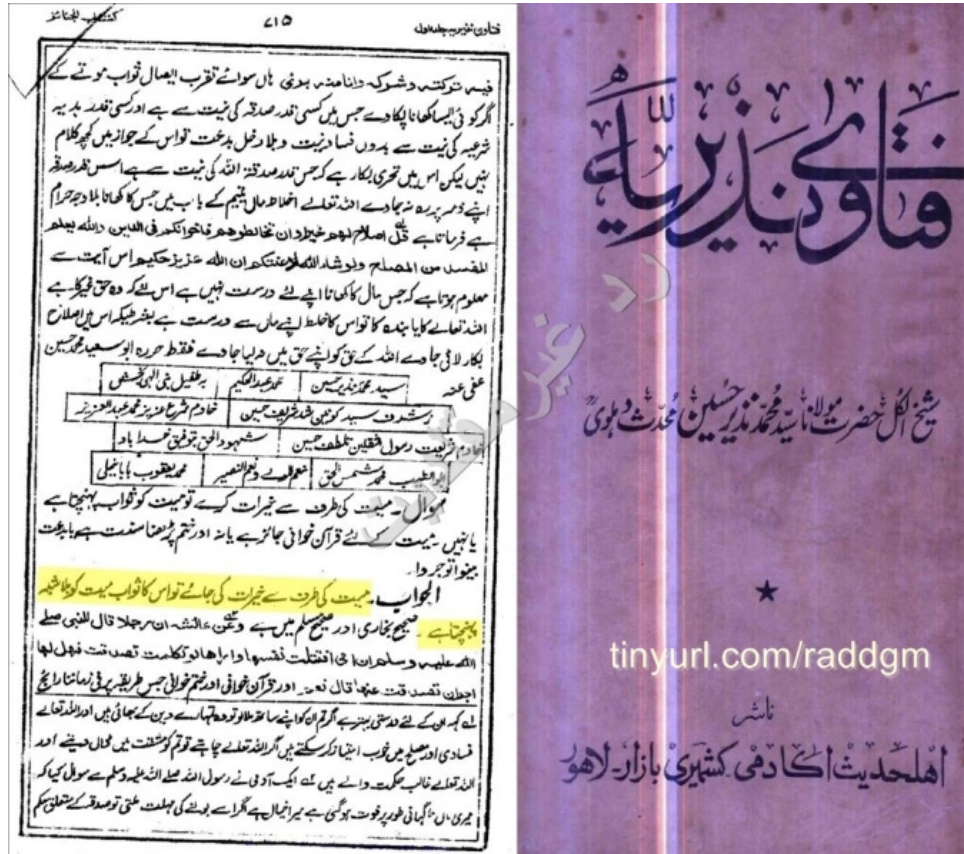 فتاوٰی نذیریہ جلد اول
۷۱۵
کتاب الجنائز
فیہ ترکتہ وشرکہ دانا منہ بری ہاں سوائے تقرب ایصال ثواب موتے کے
اگر کوئی ایسا کھانا پکا دے جس میں کسی قدر صدقہ کی نیت سے ہے اور کسی قدر ہدیہ
شرعیہ کی نیت سے بدوں فساد نیت و بلا دخل بدعت تو اس کے جواز میں کچھ کلام
نہیں لیکن اس میں تحری بکار ہے کہ جس قدر صدقۃ اللہ کی نیت سے ہے اس قدر صدقہ
اپنے ذمہ پر رہ نہ جاوے اللہ تعالے اخلاط مال یتیم کے باب میں جس کا کھانا بلا وجہ حرام
ہے فرماتا ہے قل اصلاح لهم خیر وان تخالطوهم فاخوانکم فی الدین والله یعلم
المفسد من المصلح ولو شاء الله لاعنتکم ان الله عزیز حکیم اس آیت سے
معلوم ہوتا ہے کہ جس مال کا کھانا اپنے لئے درست نہیں ہے اس لئے کہ وہ حق غیر کا ہے
اللہ تعالے کا یا بندہ کا تو اس کا خلط اپنے مال سے درست ہے بشرطیکہ اس میں اصلاح
بکار لائی جاوے اللہ کے حق کو اپنے حق میں نہ لیا جاوے فقط حررہ ابو سعید محمد حسین
عفی عنہ
سید محمد نذیر حسین
محمد عبد الحکیم
بہ طفیل نبی الہی بخش
زشرف سید کونین شد شریف حسین
خادم شرع عزیز محمد عبد العزیز
خادم شریعت رسول الثقلین تلطف حسین
شہود الحق بتوفیق خداباد
ابو الطیب محمد شمس الحق
نعم المولے ونعم النصیر
محمد یعقوب
سوال۔ میت کی طرف سے خیرات کرے تو میت کو ثواب پہنچتا ہے
یا نہیں۔ میت کے لئے قرآن خوانی جائز ہے یا نہ اور ختم پڑھنا سنت ہے یا بدعت
بینوا توجروا۔
الجواب۔ میت کی طرف سے خیرات کی جائے تو اس کا ثواب میت کو بلاشبہ
پہنچتا ہے۔ صحیح بخاری اور صحیح مسلم میں ہے وعن عائشۃ ان رجلا قال للنبی صلے
الله علیہ وسلم ان امی افتلتت نفسها واراها لو تکلمت تصدقت فهل لها
اجران تصدقت عنها قال نعم۔ اور قرآن خوانی اور ختم خوانی جس طریقہ پر فی زماننا رائج
لے کہہ ان کے لئے درستی بہتر ہے اگر تم ان کو اپنے ساتھ ملا لو تو وہ تمہارے دین کے بھائی ہیں اور اللہ تعالے
فسادی اور مصلح میں خوب امتیاز کر سکتے ہیں اگر اللہ تعالے چاہتے تو تم کو مشقت میں ڈال دیتے اور
اللہ تعالے غالب حکمت والے ہیں ۲ے ایک آدمی نے رسول اللہ صلے اللہ علیہ وسلم سے سوال کیا کہ
میری ماں ناگہانی طور پر فوت ہو گئی ہے میرا خیال ہے اگر اسے بولنے کی مہلت ملتی تو صدقہ کے متعلق حکم
فتاوٰی نذیریہ
شیخ الکل حضرت مولانا سید محمد نذیر حسین محدث دہلویؒ
tinyurl.com/raddgm
ناشر
اہلحدیث اکادمی کشمیری بازار۔ لاہور
رد غیر مقلدیت